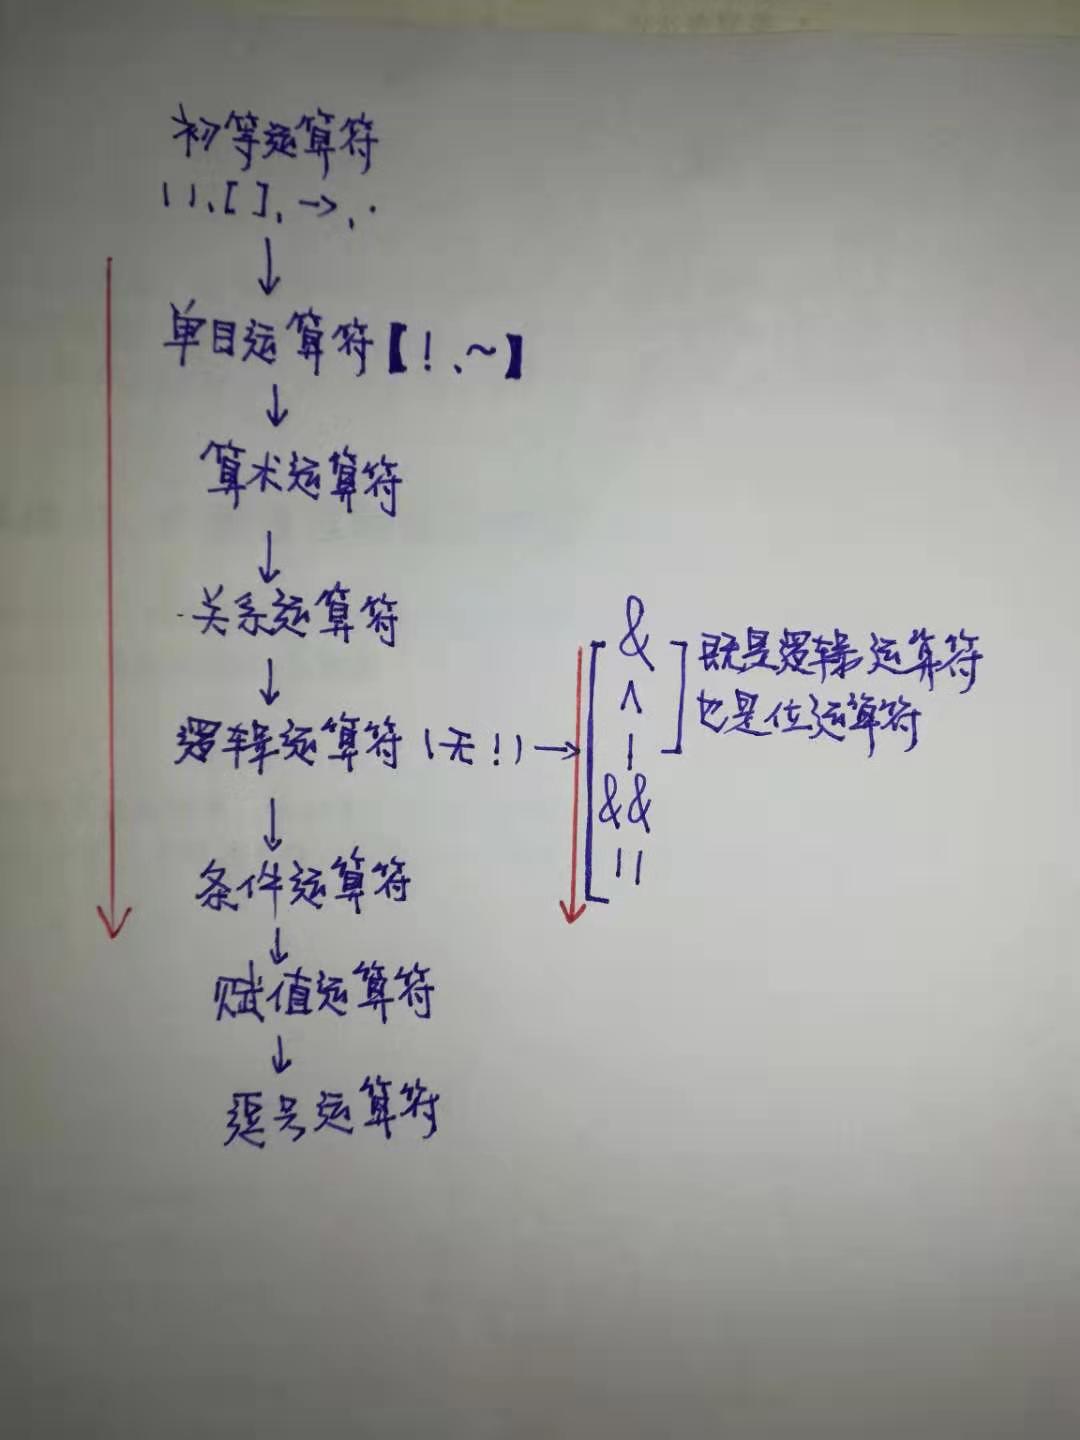 初等运算符
()、[]、→、·
单目运算符【!、~】
算术运算符
关系运算符
逻辑运算符(无!)→
&
^
|
&&
||
既是逻辑运算符
也是位运算符
条件运算符
赋值运算符
逗号运算符